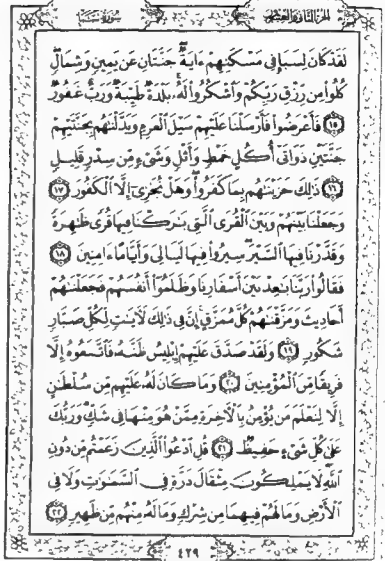 الجزء الثاني والعشرون سورة سبأ
لَقَدْ كَانَ لِسَبَإٍ فِى مَسْكَنِهِمْ ءَايَةٌ جَنَّتَانِ عَن يَمِينٍ وَشِمَالٍ
كُلُوا۟ مِن رِّزْقِ رَبِّكُمْ وَٱشْكُرُوا۟ لَهُۥ بَلْدَةٌ طَيِّبَةٌ وَرَبٌّ غَفُورٌ
١٥ فَأَعْرَضُوا۟ فَأَرْسَلْنَا عَلَيْهِمْ سَيْلَ ٱلْعَرِمِ وَبَدَّلْنَٰهُم بِجَنَّتَيْهِمْ
جَنَّتَيْنِ ذَوَاتَىْ أُكُلٍ خَمْطٍ وَأَثْلٍ وَشَىْءٍ مِّن سِدْرٍ قَلِيلٍ
١٦ ذَٰلِكَ جَزَيْنَٰهُم بِمَا كَفَرُوا۟ وَهَلْ نُجَٰزِىٓ إِلَّا ٱلْكَفُورَ ١٧
وَجَعَلْنَا بَيْنَهُمْ وَبَيْنَ ٱلْقُرَى ٱلَّتِى بَٰرَكْنَا فِيهَا قُرًى ظَٰهِرَةً
وَقَدَّرْنَا فِيهَا ٱلسَّيْرَ سِيرُوا۟ فِيهَا لَيَالِىَ وَأَيَّامًا ءَامِنِينَ ١٨
فَقَالُوا۟ رَبَّنَا بَٰعِدْ بَيْنَ أَسْفَارِنَا وَظَلَمُوٓا۟ أَنفُسَهُمْ فَجَعَلْنَٰهُمْ
أَحَادِيثَ وَمَزَّقْنَٰهُمْ كُلَّ مُمَزَّقٍ إِنَّ فِى ذَٰلِكَ لَءَايَٰتٍ لِّكُلِّ صَبَّارٍ
شَكُورٍ ١٩ وَلَقَدْ صَدَّقَ عَلَيْهِمْ إِبْلِيسُ ظَنَّهُۥ فَٱتَّبَعُوهُ إِلَّا
فَرِيقًا مِّنَ ٱلْمُؤْمِنِينَ ٢٠ وَمَا كَانَ لَهُۥ عَلَيْهِم مِّن سُلْطَٰنٍ
إِلَّا لِنَعْلَمَ مَن يُؤْمِنُ بِٱلْءَاخِرَةِ مِمَّنْ هُوَ مِنْهَا فِى شَكٍّ وَرَبُّكَ
عَلَىٰ كُلِّ شَىْءٍ حَفِيظٌ ٢١ قُلِ ٱدْعُوا۟ ٱلَّذِينَ زَعَمْتُم مِّن دُونِ
ٱللَّهِ لَا يَمْلِكُونَ مِثْقَالَ ذَرَّةٍ فِى ٱلسَّمَٰوَٰتِ وَلَا فِى
ٱلْأَرْضِ وَمَا لَهُمْ فِيهِمَا مِن شِرْكٍ وَمَا لَهُۥ مِنْهُم مِّن ظَهِيرٍ ٢٢
٤٢٩